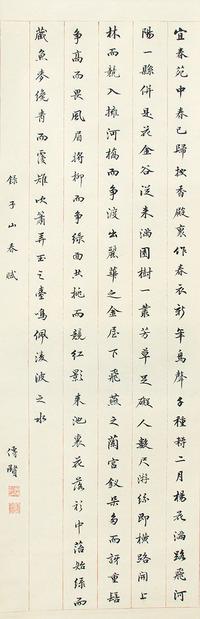 宜春苑中春已歸披香殿裏作春衣新年鳥聲千種囀二月楊花滿路飛河
陽一縣併是花金谷從來滿園樹一叢芳草足礙人數尺游絲即橫路開上
林而競入擁河橋而爭渡出麗華之金屋下飛燕之蘭宮釵朵多而訝重髻
高而畏風眉將柳而爭綠面共桃而競紅影來池裏花落衫中苔始綠而
藏魚麥纔青而覆雉吹簫弄玉之臺鳴佩凌波之水
錄子山春賦